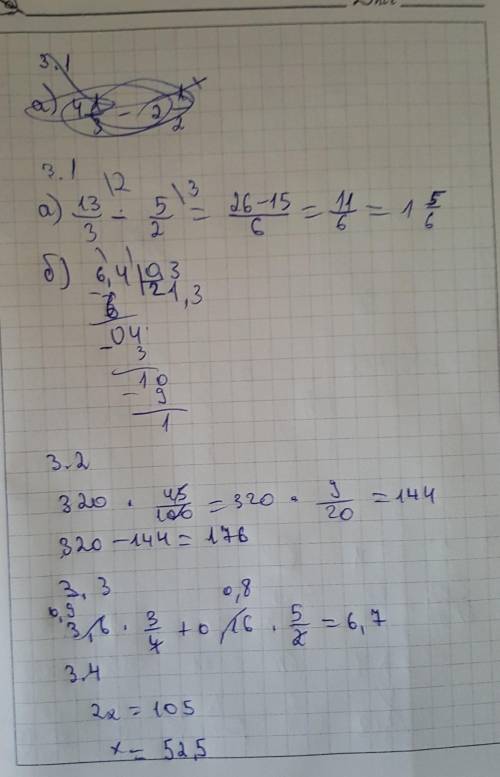 3.1
а) 4 1/3 - 2 1/2
3.1
а) 13/3 \2 - 5/2 \3 = 26-15/6 = 11/6 = 1 5/6
б) 6,4 | 0,3
- 6 | 21,3
04
- 3
10
- 9
1
3.2
320 · 45/100 = 320 · 9/20 = 144
320 - 144 = 176
3.3
0,9 0,8
3,6 · 3/4 + 0,16 · 5/2 = 6,7
3.4
2x = 105
x = 52,5